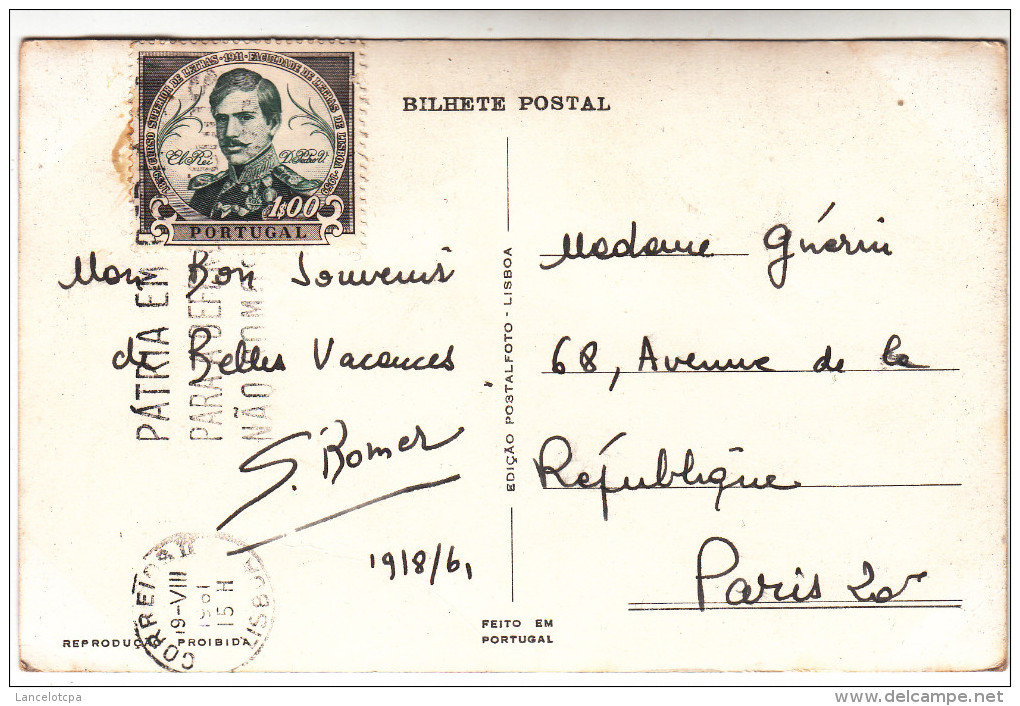 BILHETE POSTAL
1859 · CURSO SUPERIOR DE LETRAS · 1911 · FACULDADE DE LETRAS DE LISBOA · 1959
El Rei D. Pedro V.
1$00
PORTUGAL
PÁTRIA EM
PARA A DEF
NÃO
Mon Bon Souvenir
de Belles Vacances
19/8/61
CORREIOS
19-VIII
1961
15 H
LISBOA
REPRODUÇÃO PROIBIDA
EDIÇÃO POSTALFOTO - LISBOA
FEITO EM
PORTUGAL
Madame Guérin
68, Avenue de la
République
Paris 20e
Lancelotcpa
delcampe.net